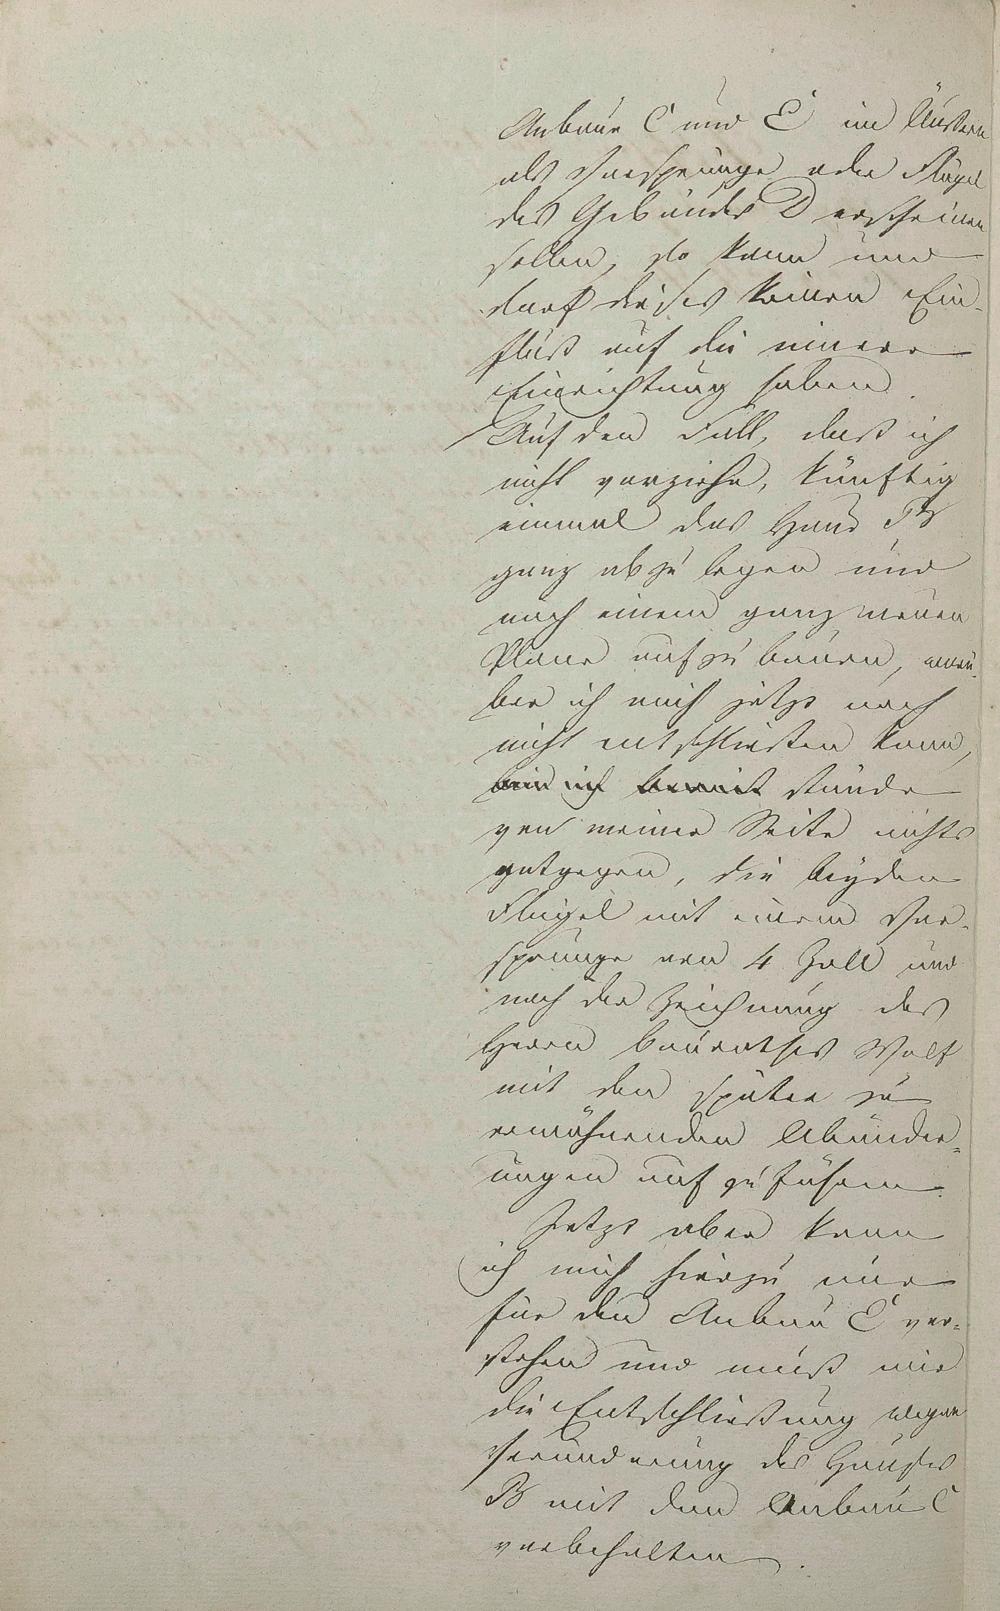 Anbaue C und E im Äußern
als Vorsprünge oder Flügel
des Gebäudes D erscheinen
sollen, so kann und
darf dieses keinen Ein-
fluß auf die innere
Einrichtung haben.
Auf den Fall, daß ich
nicht vorziehe, künftig
einmal das Haus B
ganz abzulegen und
nach einem ganz neuen
Plane aufzubauen, worü-
ber ich mich jetzt noch
nicht entschließen kann,
bin ich bereit stünde
von meiner Seite nichts
entgegen, die beyden
Flügel mit einem Vor-
sprunge von 4 Zoll und
nach der Zeichnung des
Herrn Baurathes Wolf
mit den später zu
erwähnenden Abänder-
ungen aufzuführen.
Jetzt aber kann
ich mich hierzu nur
für den Anbau E ver-
stehen und muß mir
die Entschließung wegen
Veränderung des Hauses
B mit dem Anbau C
vorbehalten.